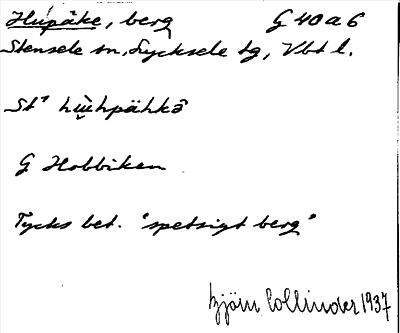 Hupåke, berg G 40 a 6
Stensele sn, Lycksele tg, Vbt l.
Stˢ hùhpähkô
G Hobbiken
Tycks bet. "spetsigt berg"
Björn Collinder 1937